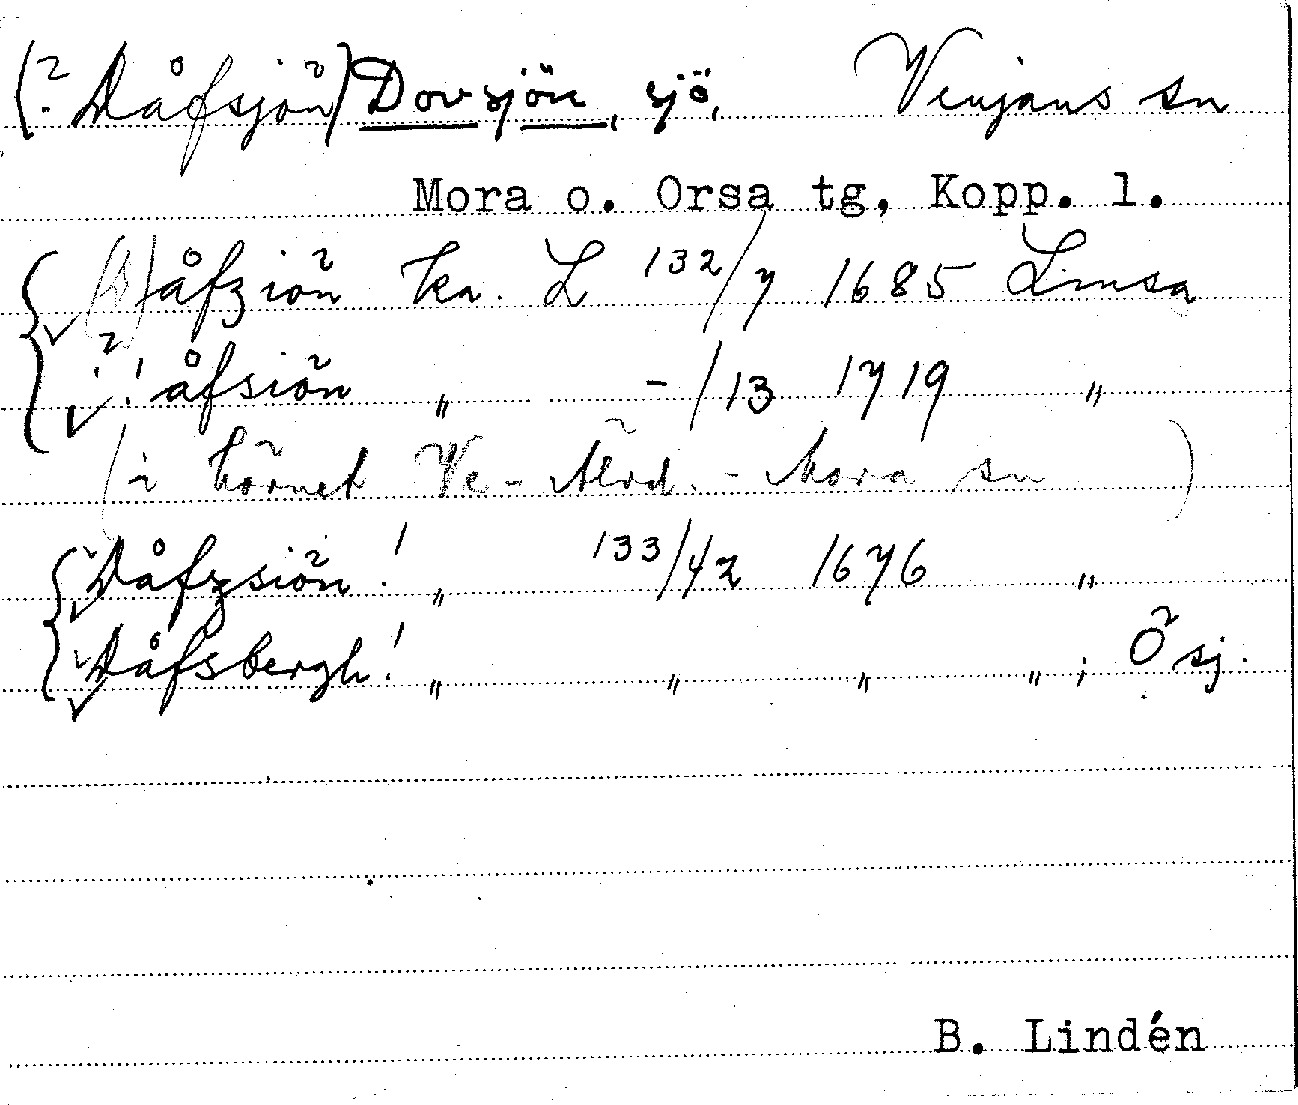 (? Dåfsjön) Dovsjön, sjö, Venjans sn
Mora o. Orsa tg, Kopp. l.
(D)åfziön ka. L 132/7 1685 Limsa
?! åfsiön " -/13 1719 "
(i hörnet Ve - Älvd. - Mora sn )
Dåfzsiön! " 133/42 1676 "
Dåfsbergh! " " " " ; Ö sj.
B. Lindén